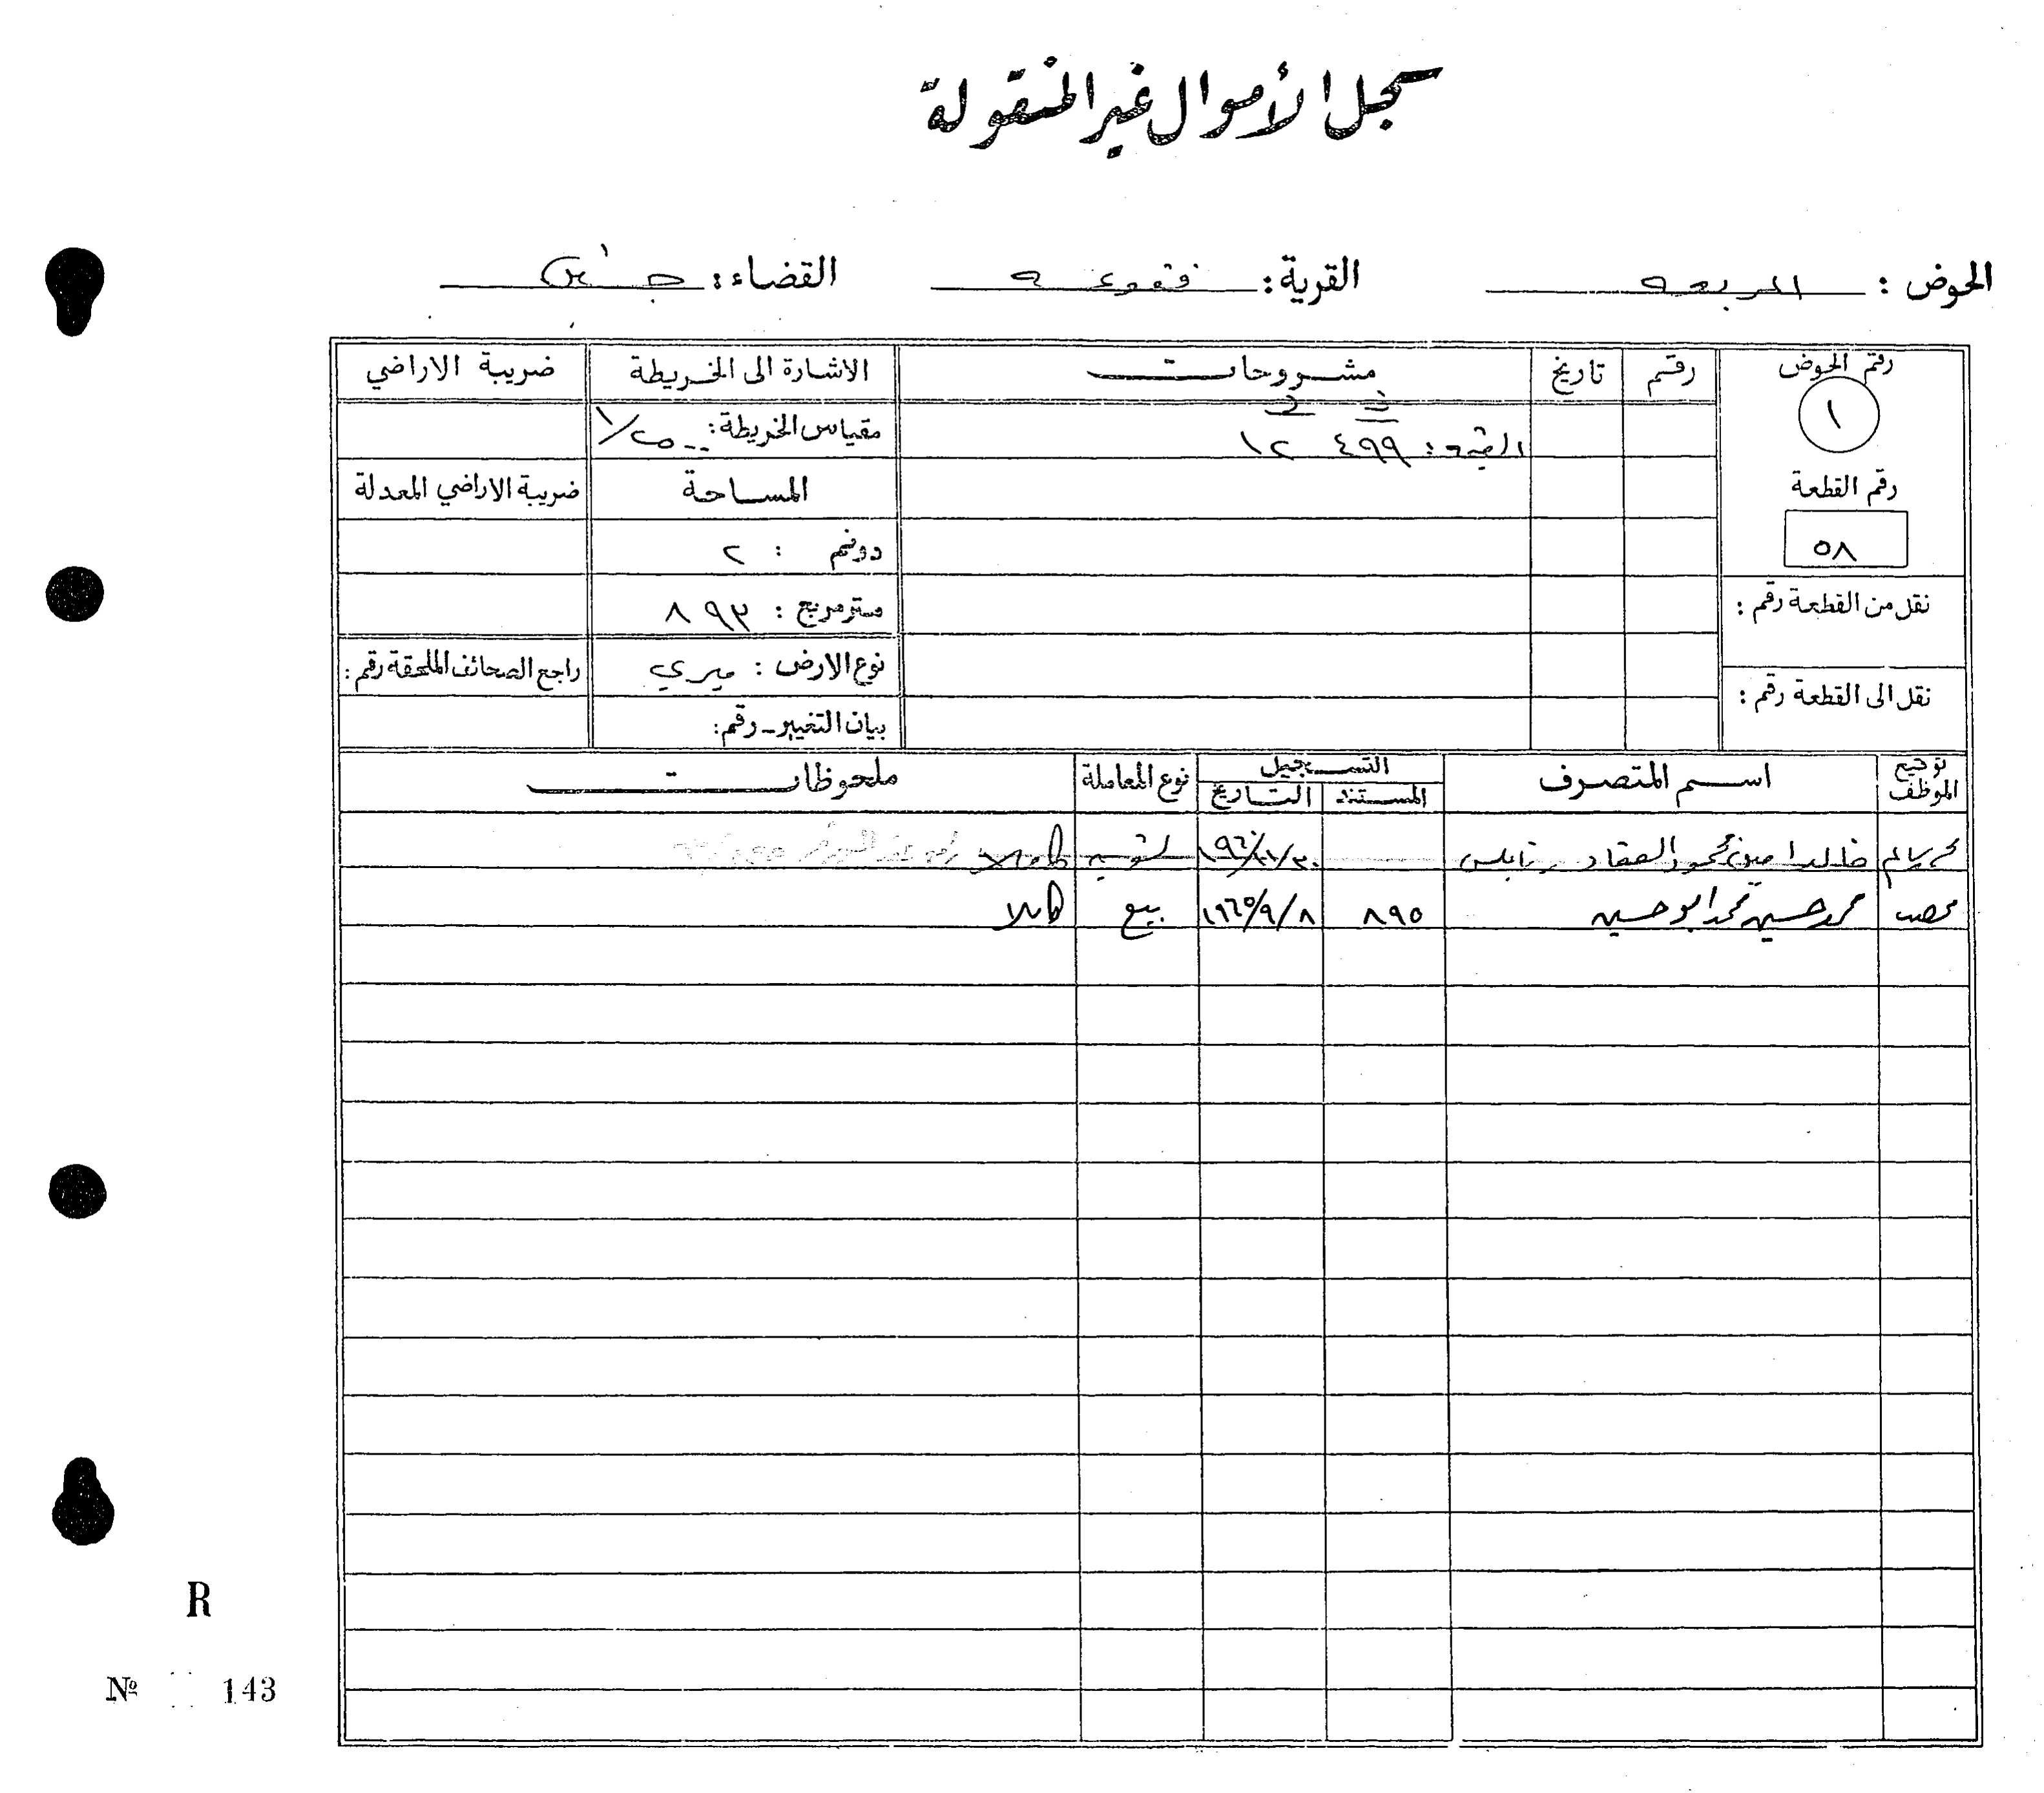 سجل الأموال غير المنقولة
الحوض : المربعه القرية : فقوعه القضاء : جنين
رقم الحوض رقم تاريخ مشروحات الاشارة الى الخريطة ضريبة الاراضي
١
ف ج
القيد : ٤٩٩ ١٢
مقياس الخريطة : ١/٢٥٠٠
رقم القطعة المساحة ضريبة الاراضي المعدلة
٥٨
دونم : ٢
نقل من القطعة رقم : متر مربع : ٨٩٣
نوع الارض : ميري راجع الصحائف الملحقة رقم :
نقل الى القطعة رقم :
بيان التغيير - رقم :
توقيع الموظف اسم المتصرف التسجيل نوع المعاملة ملحوظات
المستند التاريخ
خالد امين محمود العقاد نابلس تسويه كاملا
محمد حسين محمد ابو حسين ٨٩٥ ١٩٦٥/٩/٨ بيع كاملا
R
№ 143